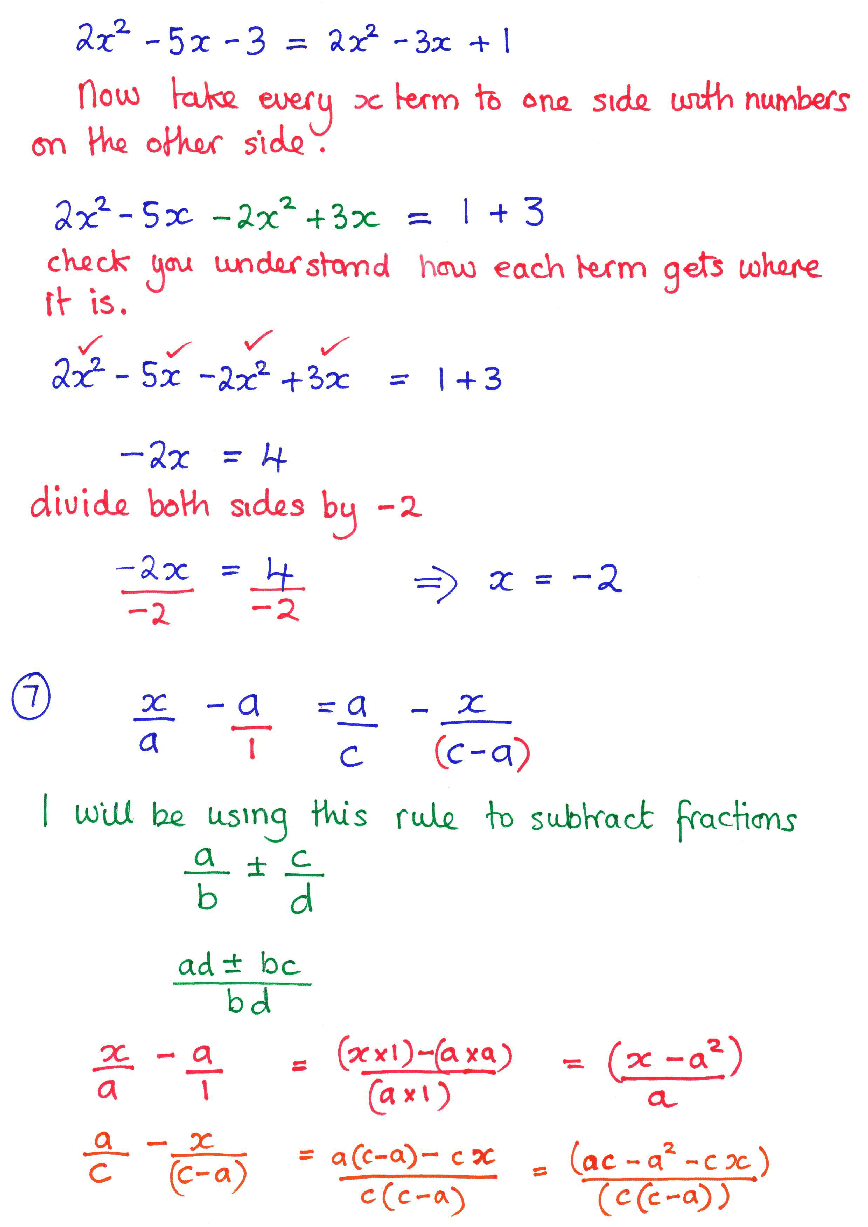 2x² - 5x - 3 = 2x² - 3x + 1
Now take every x term to one side with numbers
on the other side.
2x² - 5x - 2x² + 3x = 1 + 3
check you understand how each term gets where
it is.
✓ ✓ ✓ ✓
2x² - 5x - 2x² + 3x = 1 + 3
-2x = 4
divide both sides by -2
-2x/-2 = 4/-2 ⇒ x = -2
⑦ x/a - a/1 = a/c - x/(c-a)
I will be using this rule to subtract fractions
a/b ± c/d
(ad ± bc)/bd
x/a - a/1 = (x×1)-(a×a)/(a×1) = (x - a²)/a
a/c - x/(c-a) = a(c-a) - cx/c(c-a) = (ac - a² - cx)/(c(c-a))